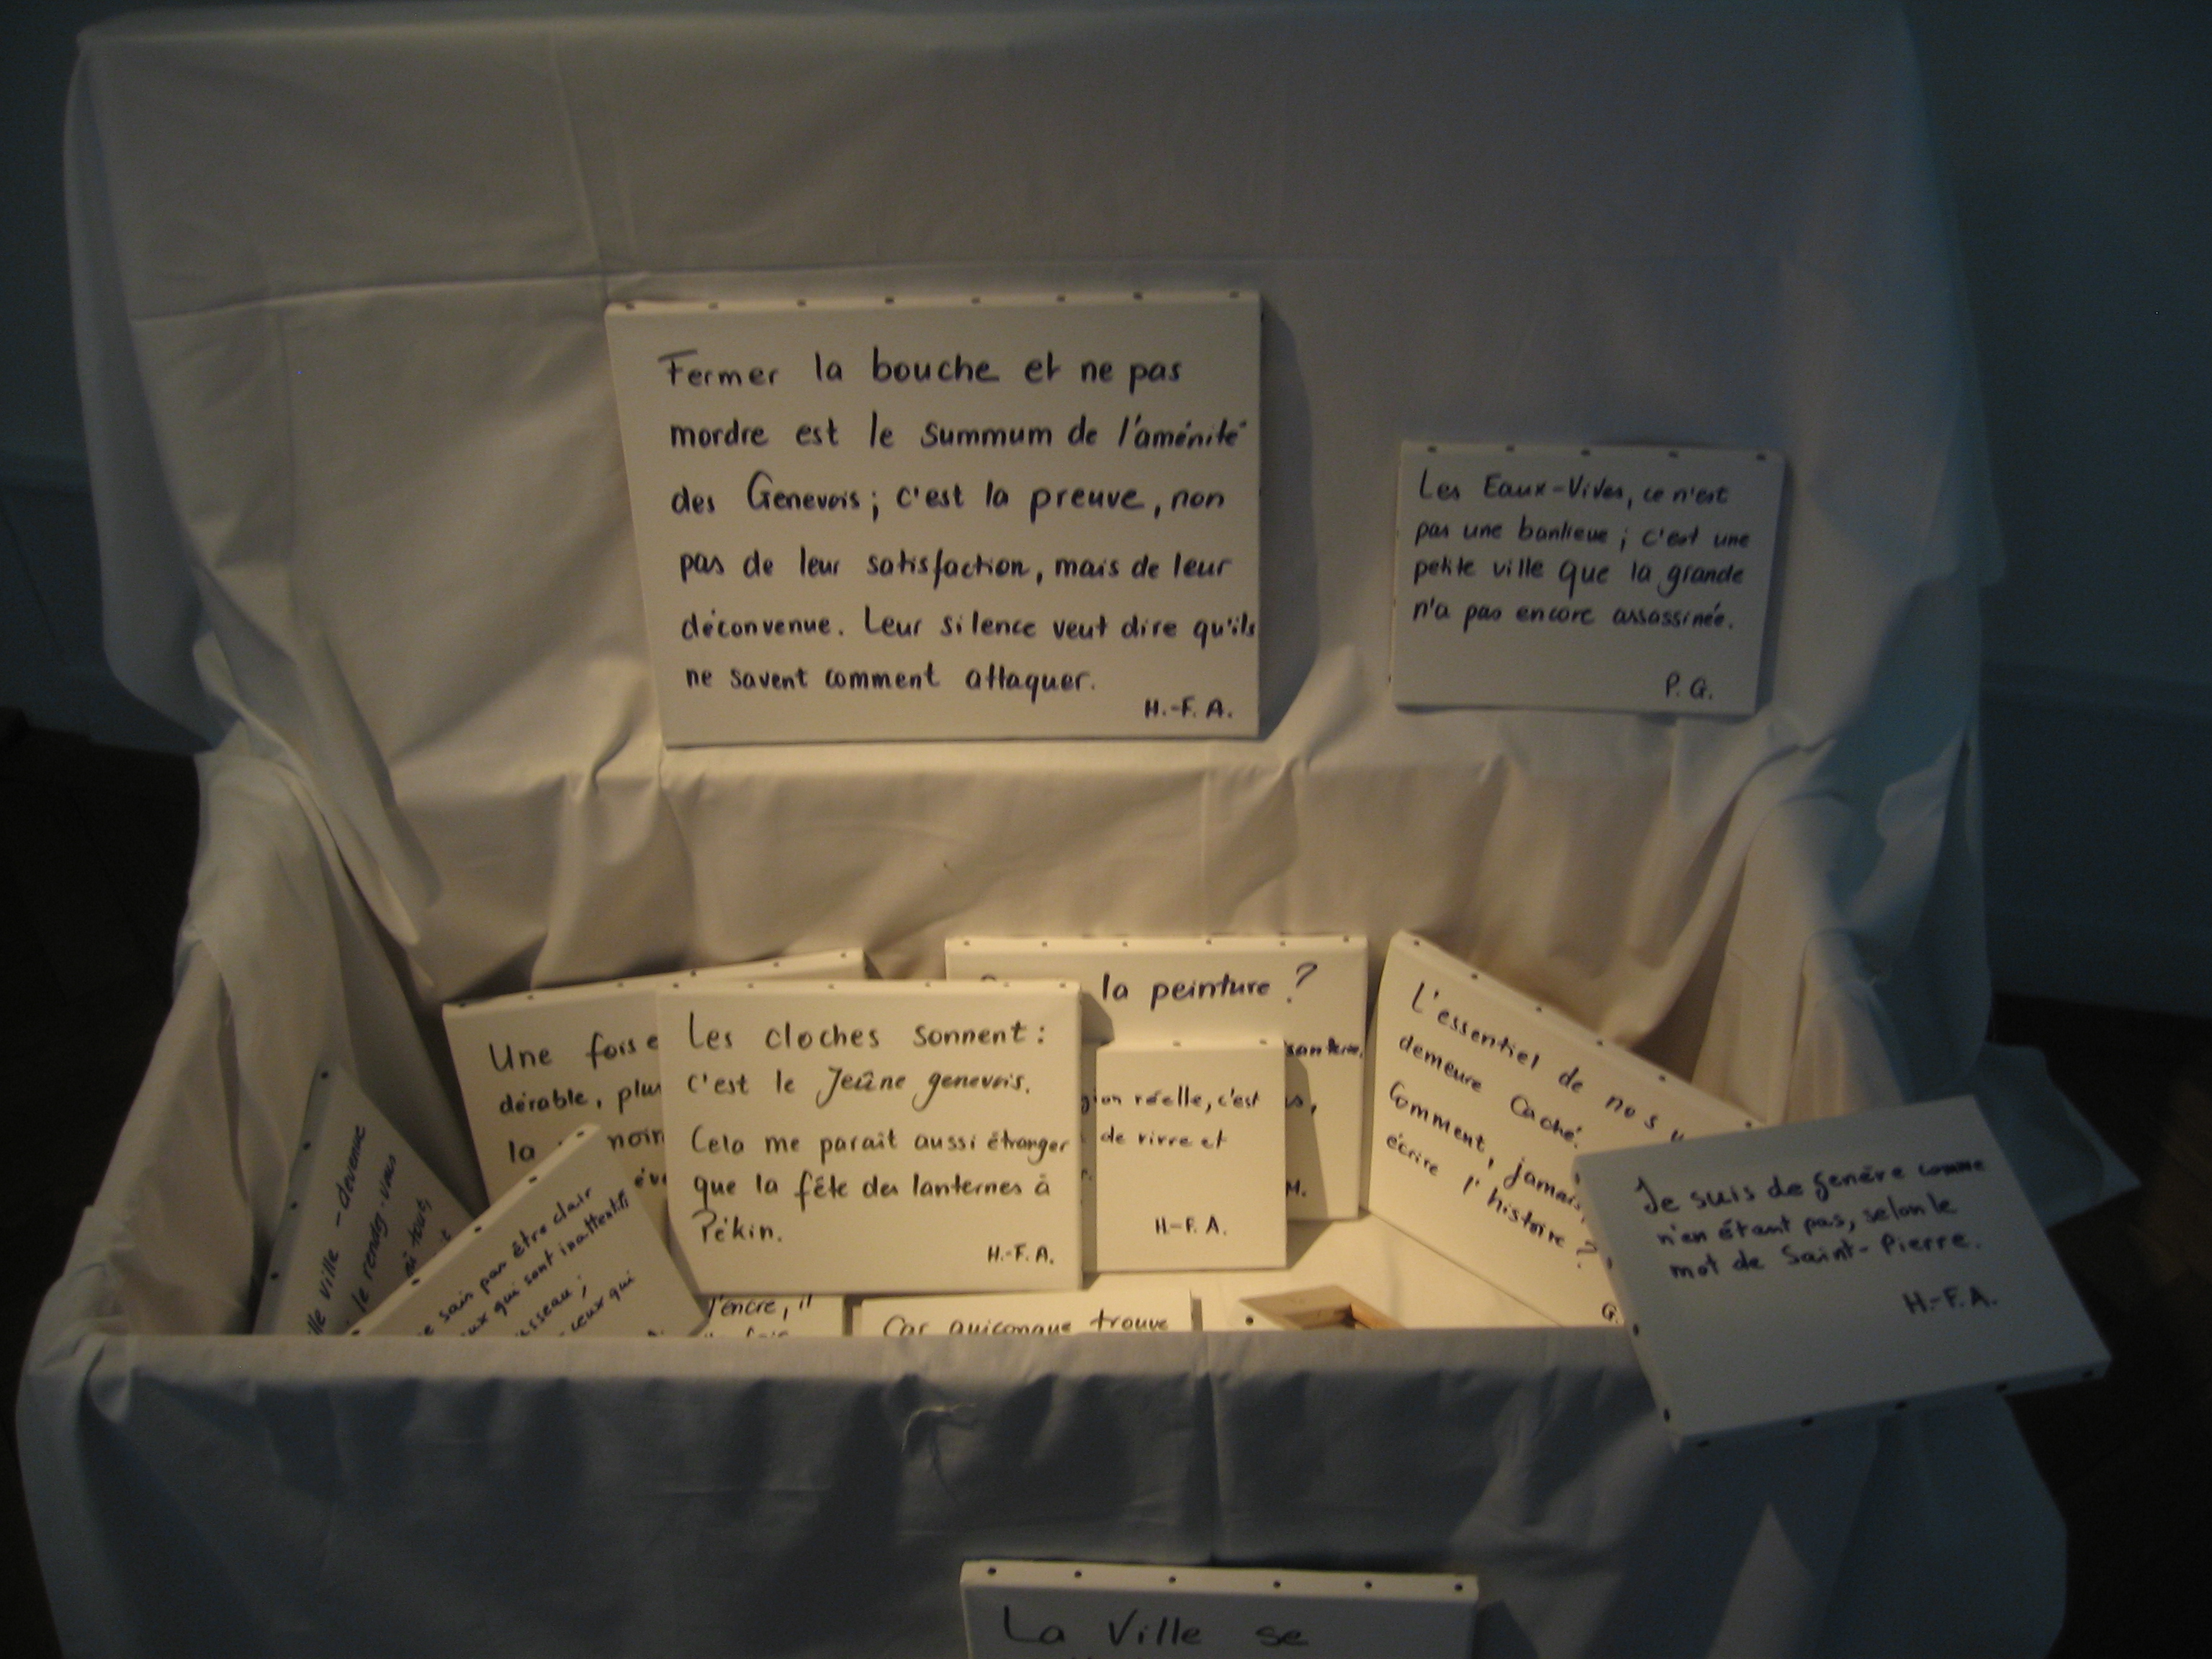 Fermer la bouche et ne pas
mordre est le summum de l'aménité
des Genevois ; c'est la preuve, non
pas de leur satisfaction, mais de leur
déconvenue. Leur silence veut dire qu'ils
ne savent comment attaquer.
H.-F. A.
Les Eaux-Vives, ce n'est
pas une banlieue ; c'est une
petite ville que la grande
n'a pas encore assassinée.
P. G.
Une fois
dérable, plus
la noir
Les cloches sonnent :
c'est le Jeûne genevois.
Cela me paraît aussi étranger
que la fête des lanternes à
Pékin.
H.-F. A.
la peinture ?
M.
réelle, c'est
de vivre et
H.-F. A.
L'essentiel de nos
demeure caché.
Comment, jamais,
écrire l'histoire ?
G.
Je suis de Genève comme
n'en étant pas, selon le
mot de Saint-Pierre.
H.-F. A.
ville - devenue
le rendez-vous
tout,
sais pas être clair
qui sont inattentifs
ceux qui
l'encre, il
fois
Car quiconque trouve
La Ville se